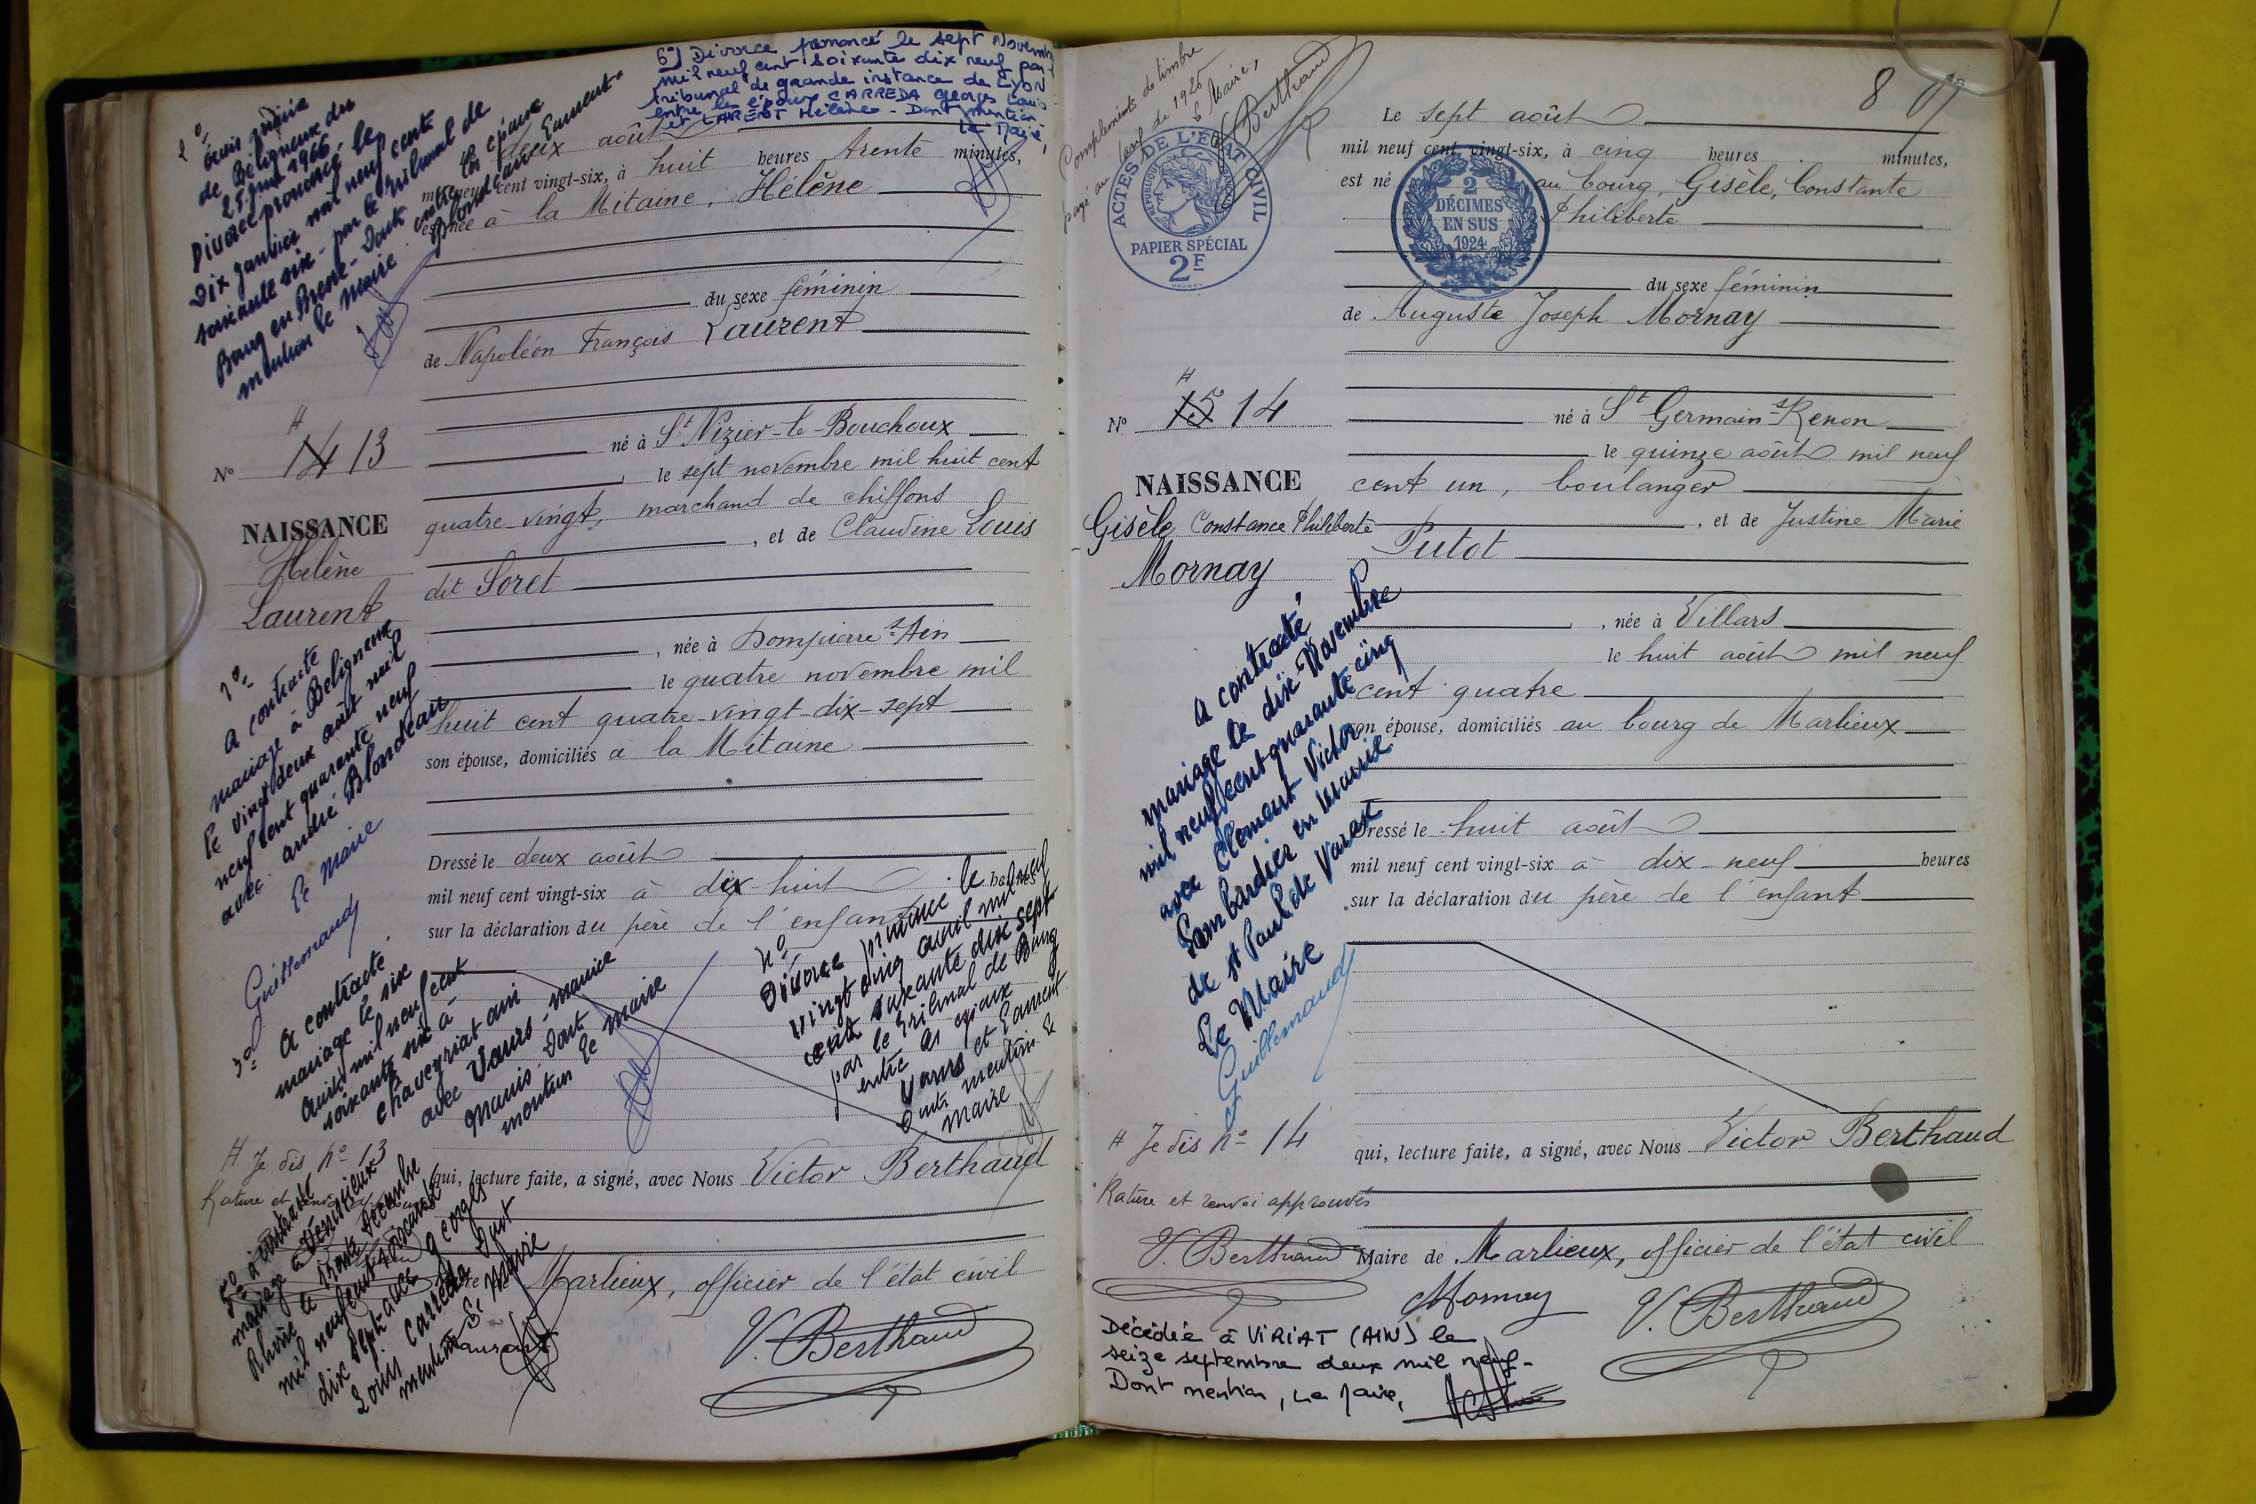 6°) Divorce prononcé le sept Novembre
mil neuf cent soixante dix neuf par
tribunal de grande instance de Lyon
entre les époux CARREDA Georges Louis
et LAURENT Hélène - Dont mention
Le Maire,
2°
Avis mairie
de Béligneux du
25 juin 1966
Divorce prononcé le
Dix Janvier mil neuf cent
soixante six - par le Tribunal de
Bourg en Bresse - Dont
entre les époux
Blondeau Laurent -
mention le maire
deux août
mil neuf cent vingt-six, à huit heures trente minutes,
est née à la Mitaine, Hélène
du sexe féminin
de Napoléon François Laurent
H
N° 14 13
né à St Nizier-le-Bouchoux
, le sept novembre mil huit cent
quatre-vingt, marchand de chiffons
NAISSANCE
Hélène
Laurent
, et de Claudine Louis
dit Soret
, née à Dompierre s/ Ain
le quatre novembre mil
huit cent quatre-vingt-dix-sept
son épouse, domiciliés à la Mitaine
1°-
A contracté
mariage à Beligneux
le vingt deux août mil
neuf cent quarante neuf
avec André Blondeau
Le Maire
Guillemaud
Dressé le deux août
mil neuf cent vingt-six à dix-huit heures
sur la déclaration du père de l'enfant
3°
A contracté
mariage le six
Août mil neuf cent
soixante six à
Chaveyriat ain
avec Vaurs - maurice
Dont
mention le maire
4°
Divorce prononcé le
vingt cinq avril mil neuf
cent soixante dix sept
par le Tribunal de Bourg
entre les époux
Vaurs et Laurent
Dont mention le
maire
H Je dis n° 13
Rature et
qui, lecture faite, a signé, avec Nous Victor Berthaud
Marlieux, officier de l'état civil
5°
a contracté
mariage à Vénissieux
Rhône le trente Décembre
mil neuf cent soixante
dix sept avec Georges
Louis Carreda Dont
mention Le Maire
Laurent
V. Berthaud
Complément de timbre
payé au tarif de 1925
Le Maire,
V. Berthaud
ACTES DE L'ETAT CIVIL
REPUBLIQUE FRANÇAISE
PAPIER SPÉCIAL
2F
2
DÉCIMES
EN SUS
1924
8
Le sept août
mil neuf cent vingt-six, à cinq heures minutes,
est né au bourg, Gisèle, Constante
Philiberte
du sexe féminin
de Auguste Joseph Mornay
H
N° 15 14
né à St Germain s/ Renon
le quinze août mil neuf
cent un, boulanger
NAISSANCE
Gisèle Constance Philiberte
Mornay
, et de Justine Marie
Putot
, née à Villars
le huit août mil neuf
cent quatre
son épouse, domiciliés au bourg de Marlieux
A contracté
mariage le dix Novembre
mil neuf cent quarante cinq
avec Clément Victor
Lombardier en mairie
de St Paul de Varax
Le Maire
Guillemaud
Dressé le huit août
mil neuf cent vingt-six à dix-neuf heures
sur la déclaration du père de l'enfant
H Je dis n° 14
Rature et renvoi approuvés
V. Berthaud
qui, lecture faite, a signé, avec Nous Victor Berthaud
Maire de Marlieux, officier de l'état civil
Mornay
V. Berthaud
Décédée à VIRIAT (AIN) le
seize septembre deux mil neuf -
Dont mention, Le Maire,